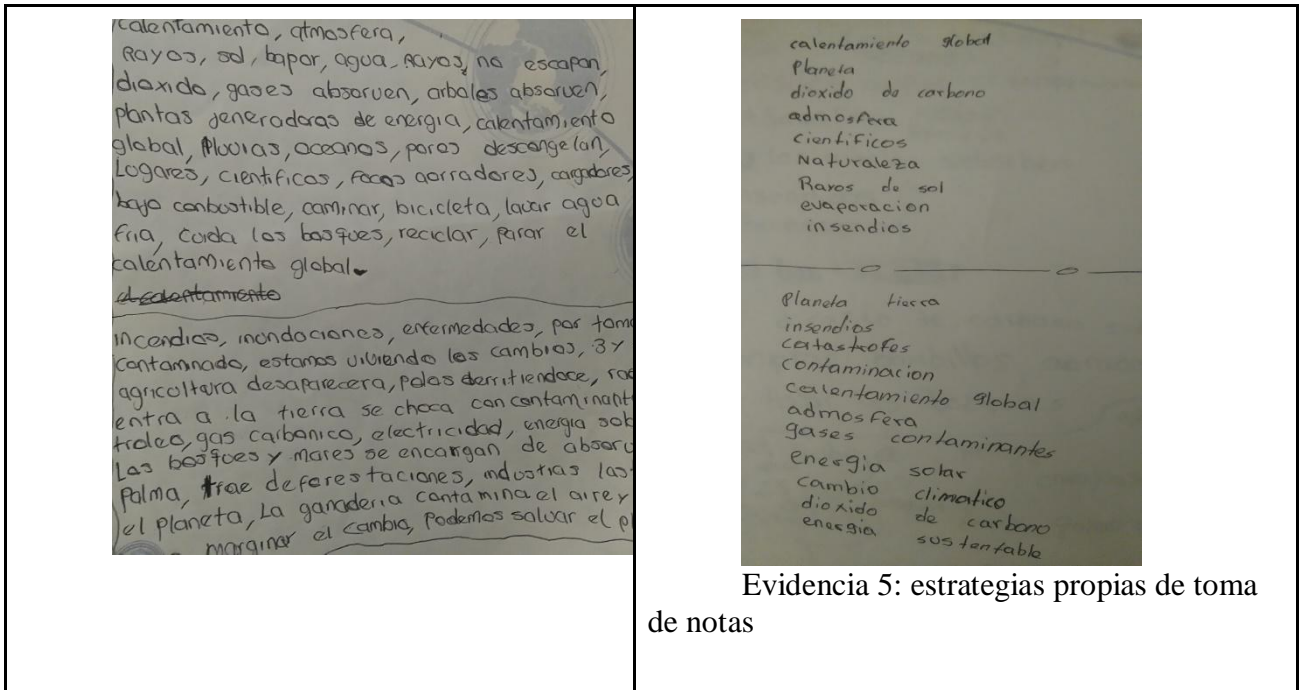 calentamiento, atmosfera,
Rayos, sol, bapor, agua, Rayos, no escapan,
dioxido, gases absorven, arboles absorven,
plantas jeneradoras de energia, calentamiento
global, lluvias, oceanos, poros descongelan,
Logares, cientificos, focos aorradores, cargadores,
bajo conbustible, caminar, bicicleta, lavar agua
fria, cuida los bosques, reciclar, parar el
calentamiento global.
el calentamiento
incendios, inondaciones, enfermedades, por toma
contamnado, estamos viviendo los cambios, 3 y
agricoltura desaparecera, polos derritiendoce,
entra a la tierra se choca con contaminant
troleo, gas carbonico, electricidad, energia sol
Los bosques y mares se encargan de absorv
Palma, trae deforestaciones, industrias las
el planeta, La ganaderia contamina el aire y
marginar el cambio, Podemos salvar el p
calentamiento global
Planeta
dioxido de carbono
admosfera
cientificos
Naturaleza
Rayos de sol
evaporacion
insendios
Planeta tierra
insendios
catastrofes
contaminacion
calentamiento global
admosfera
gases contaminantes
energia solar
cambio climatico
dioxido de carbono
energia sustentable
Evidencia 5: estrategias propias de toma
de notas